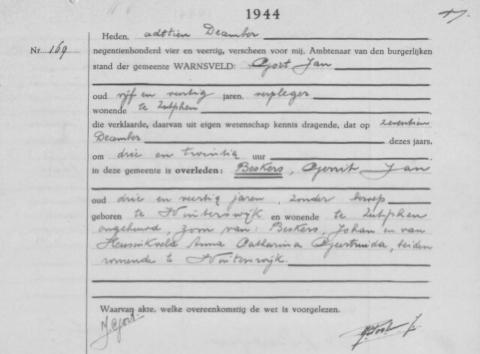 1944
Heden, achttien December
Nr 169
negentienhonderd vier en veertig, verscheen voor mij, Ambtenaar van den burgerlijken
stand der gemeente WARNSVELD: Jan
oud vijf en veertig jaren, verpleger
wonende te Zutphen
die verklaarde, daarvan uit eigen wetenschap kennis dragende, dat op zeventien
December dezes jaars,
om drie en twintig uur
in deze gemeente is overleden: Beskers, Gerrit Jan
oud drie en veertig jaren, zonder beroep
geboren te Winterswijk en wonende te Zutphen
ongehuwd, zoon van: Beskers, Johan en van
Anna Catharina Geertruida, beiden
wonende te Winterswijk.
Waarvan akte, welke overeenkomstig de wet is voorgelezen.